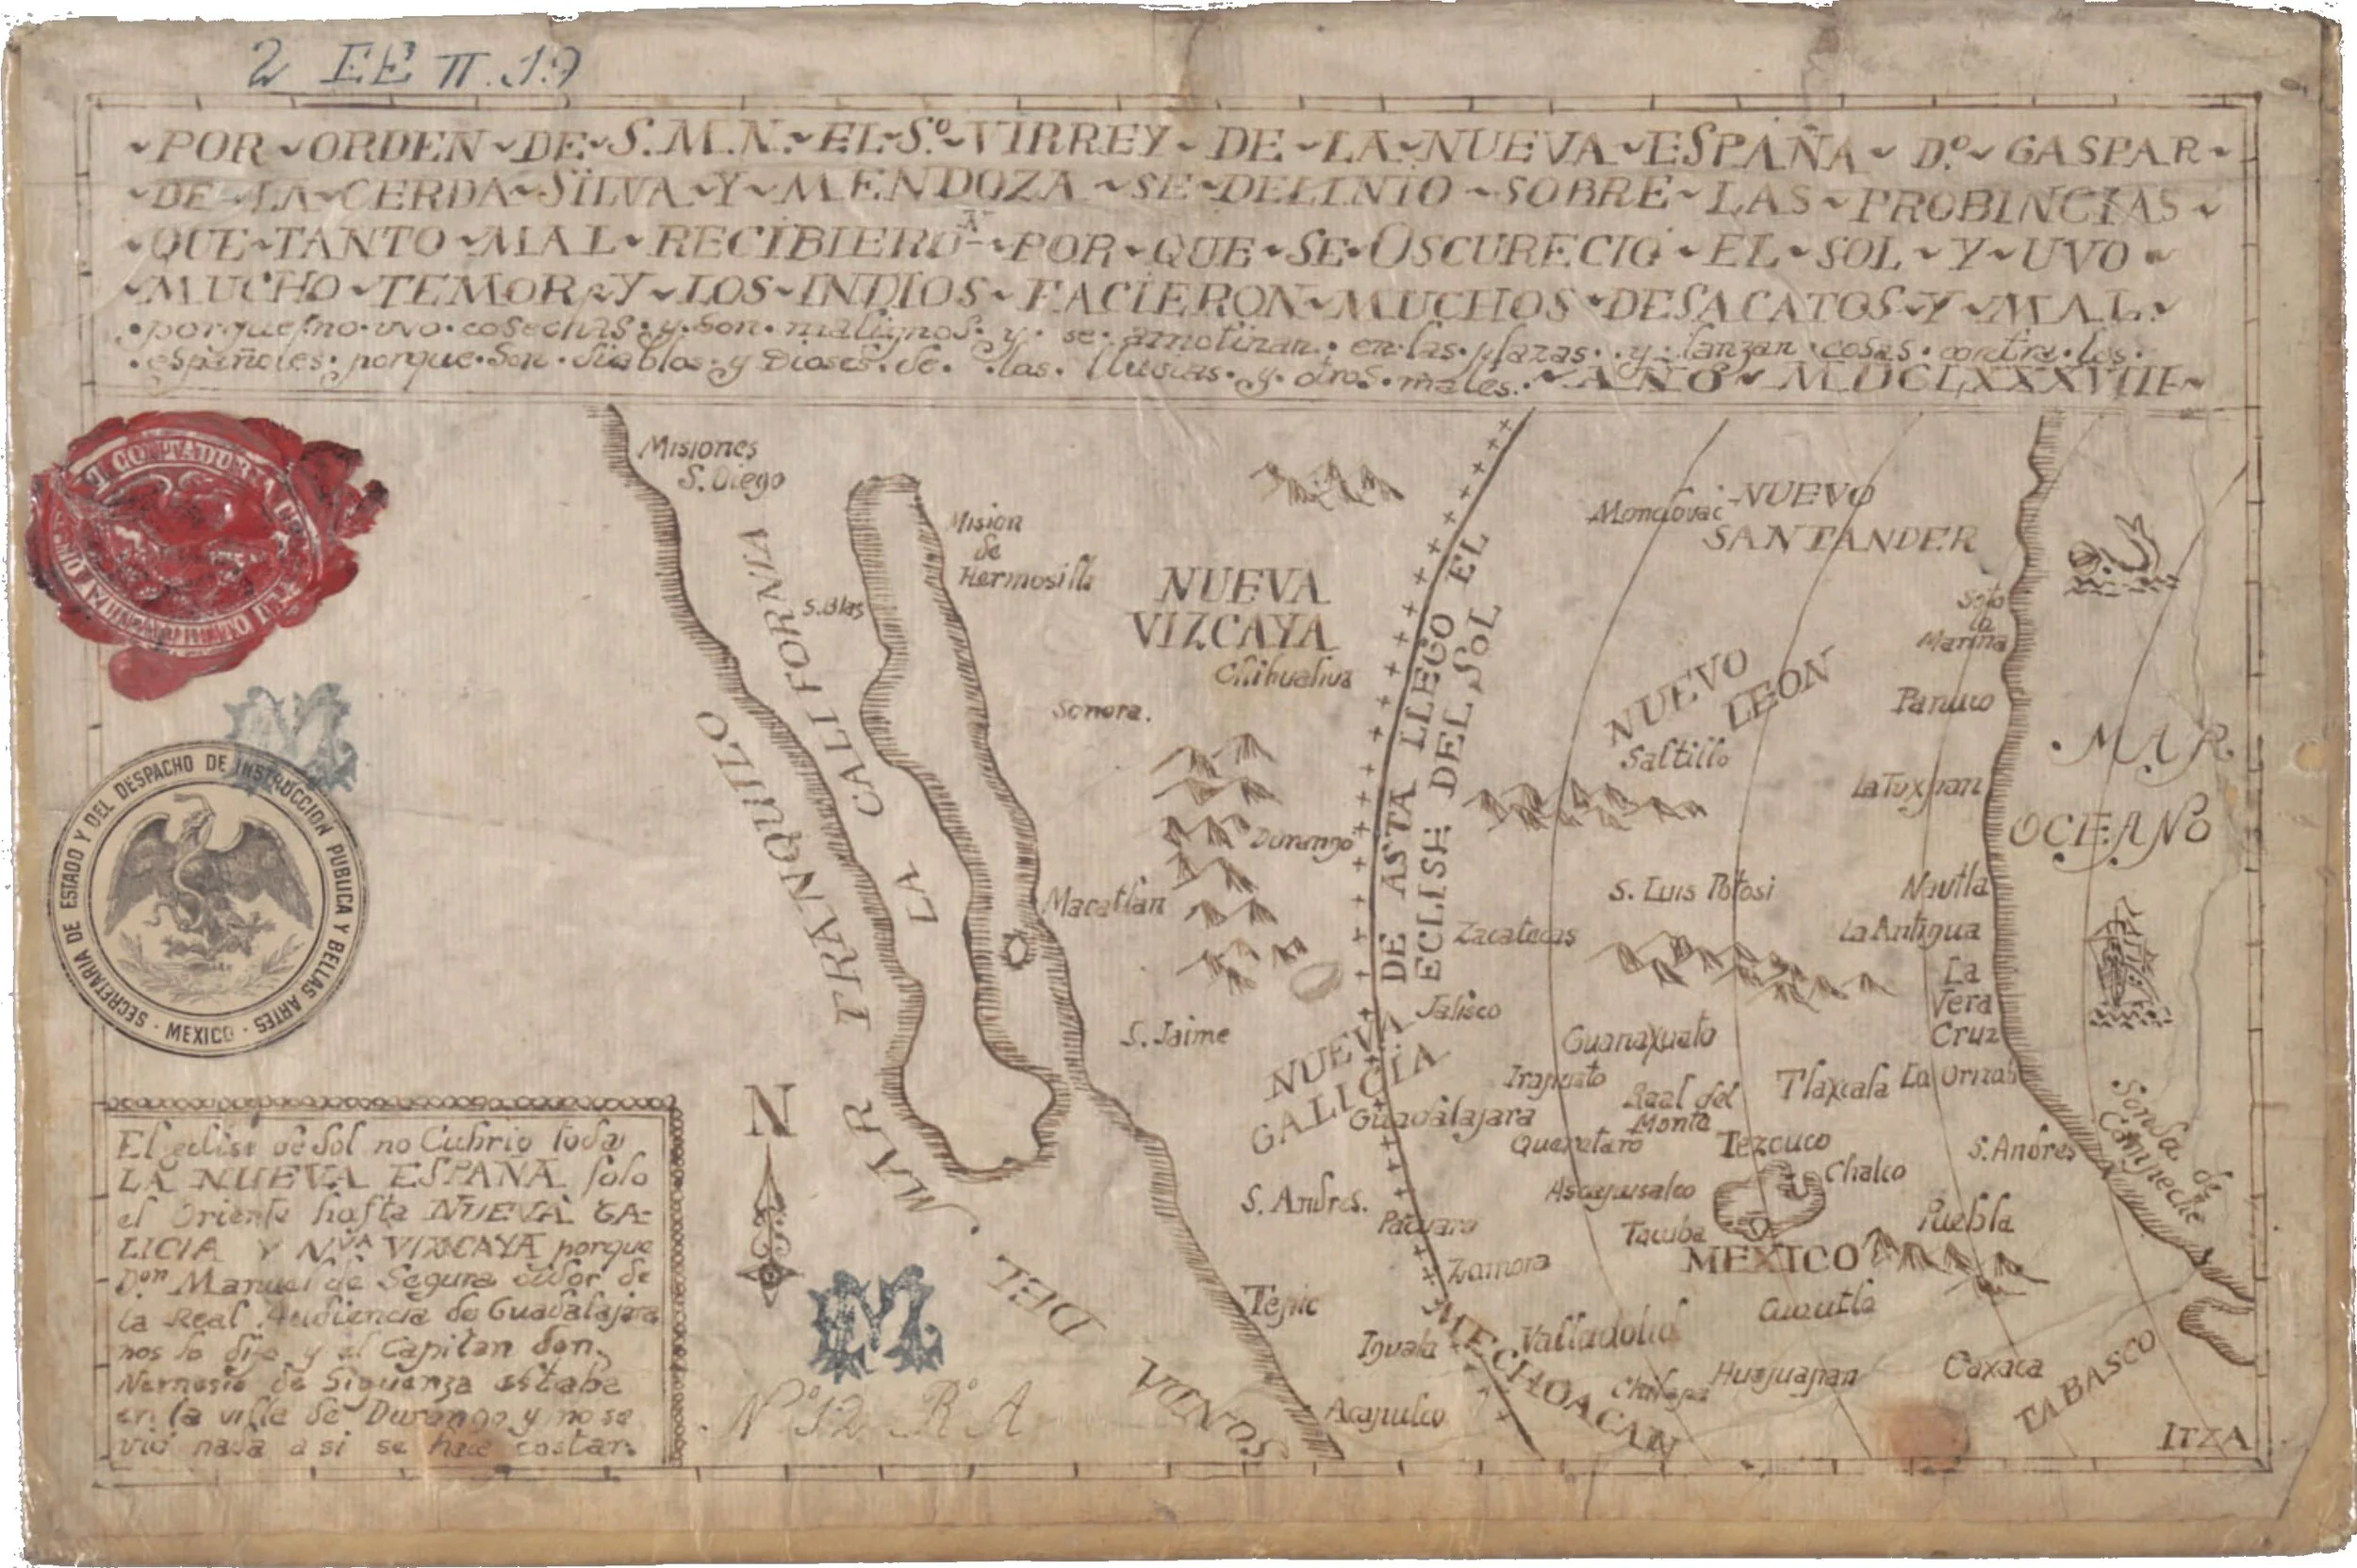 2 EE π.19
~POR~ORDEN~DE~S.M.N.~EL~Sº~VIRREY~DE~LA~NUEVA~ESPAÑA~Dº~GASPAR~
~DE~LA~CERDA~SILVA~Y~MENDOZA~SE~DELINIO~SOBRE~LAS~PROBINCIAS~
~QUE~TANTO~MAL~RECIBIERO~POR~QUE~SE~OSCURECIO~EL~SOL~Y~UVO~
~MUCHO~TEMOR~Y~LOS~INDIOS~FACIERON~MUCHOS~DESACATOS~Y~MAL~
•porque•no•uvo•cosechas•y•son•malignos•y•se•amotinan•en•las•plazas•y•lanzan•cosas•contra•los•
•españoles•porque•son•diablos•y Dioses•de•las•lluvias•y•otros•males.~AÑO~MDCLXXXVIII~
Misiones
S. Diego
Mision
de
Hermosill
S. Blas
LA CALIFORNIA
MAR TRANQUILO
NUEVA
VIZCAYA
Chihuahua
Sonora.
Durango
Macatlan
S. Jaime
DE ASTA LLEGO EL
ECLISE DEL SOL
NUEVO
SANTANDER
Soto
la
Marina
NUEVO
LEON
Panuco
Saltillo
La Tuxpan
• MAR
OCEANO
S. Luis Potosi
Nautla
Zacatecas
La Antigua
La
Vera
Cruz
Jalisco
NUEVA
GALICIA
Guanaxuato
Irapuato
Real del
Monte
Tlaxcala
La Orizab
Guadalajara
Queretaro
Tezcuco
S. Andres
Sonda de
Campeche
Chalco
S. Andres.
Pacuaro
Tacuba
Puebla
MEXICO
Zamora
Tepic
Cuautla
Iguala
Valladolid
MECHOACAN
Chilapa
Huajuapan
Oaxaca
TABASCO
Acapulco
ITZA
SONDA DEL MAR
N
Nº 12 Rº A
SECRETARIA DE ESTADO Y DEL DESPACHO DE INSTRUCCION PUBLICA Y BELLAS ARTES
· MEXICO ·
El eclise de Sol no Cubrio toda
LA NUEVA ESPAÑA solo
el Oriente hasta NUEVA GA-
LICIA Y Nᵛᴬ VIZCAYA porque
Dᵒⁿ Manuel de Segura oidor de
la Real Audiencia de Guadalajara
nos lo dijo y el Capitan don
Nemesio de Siguenza estaba
en la villa de Durango y no se
vio nada asi se hace costar.